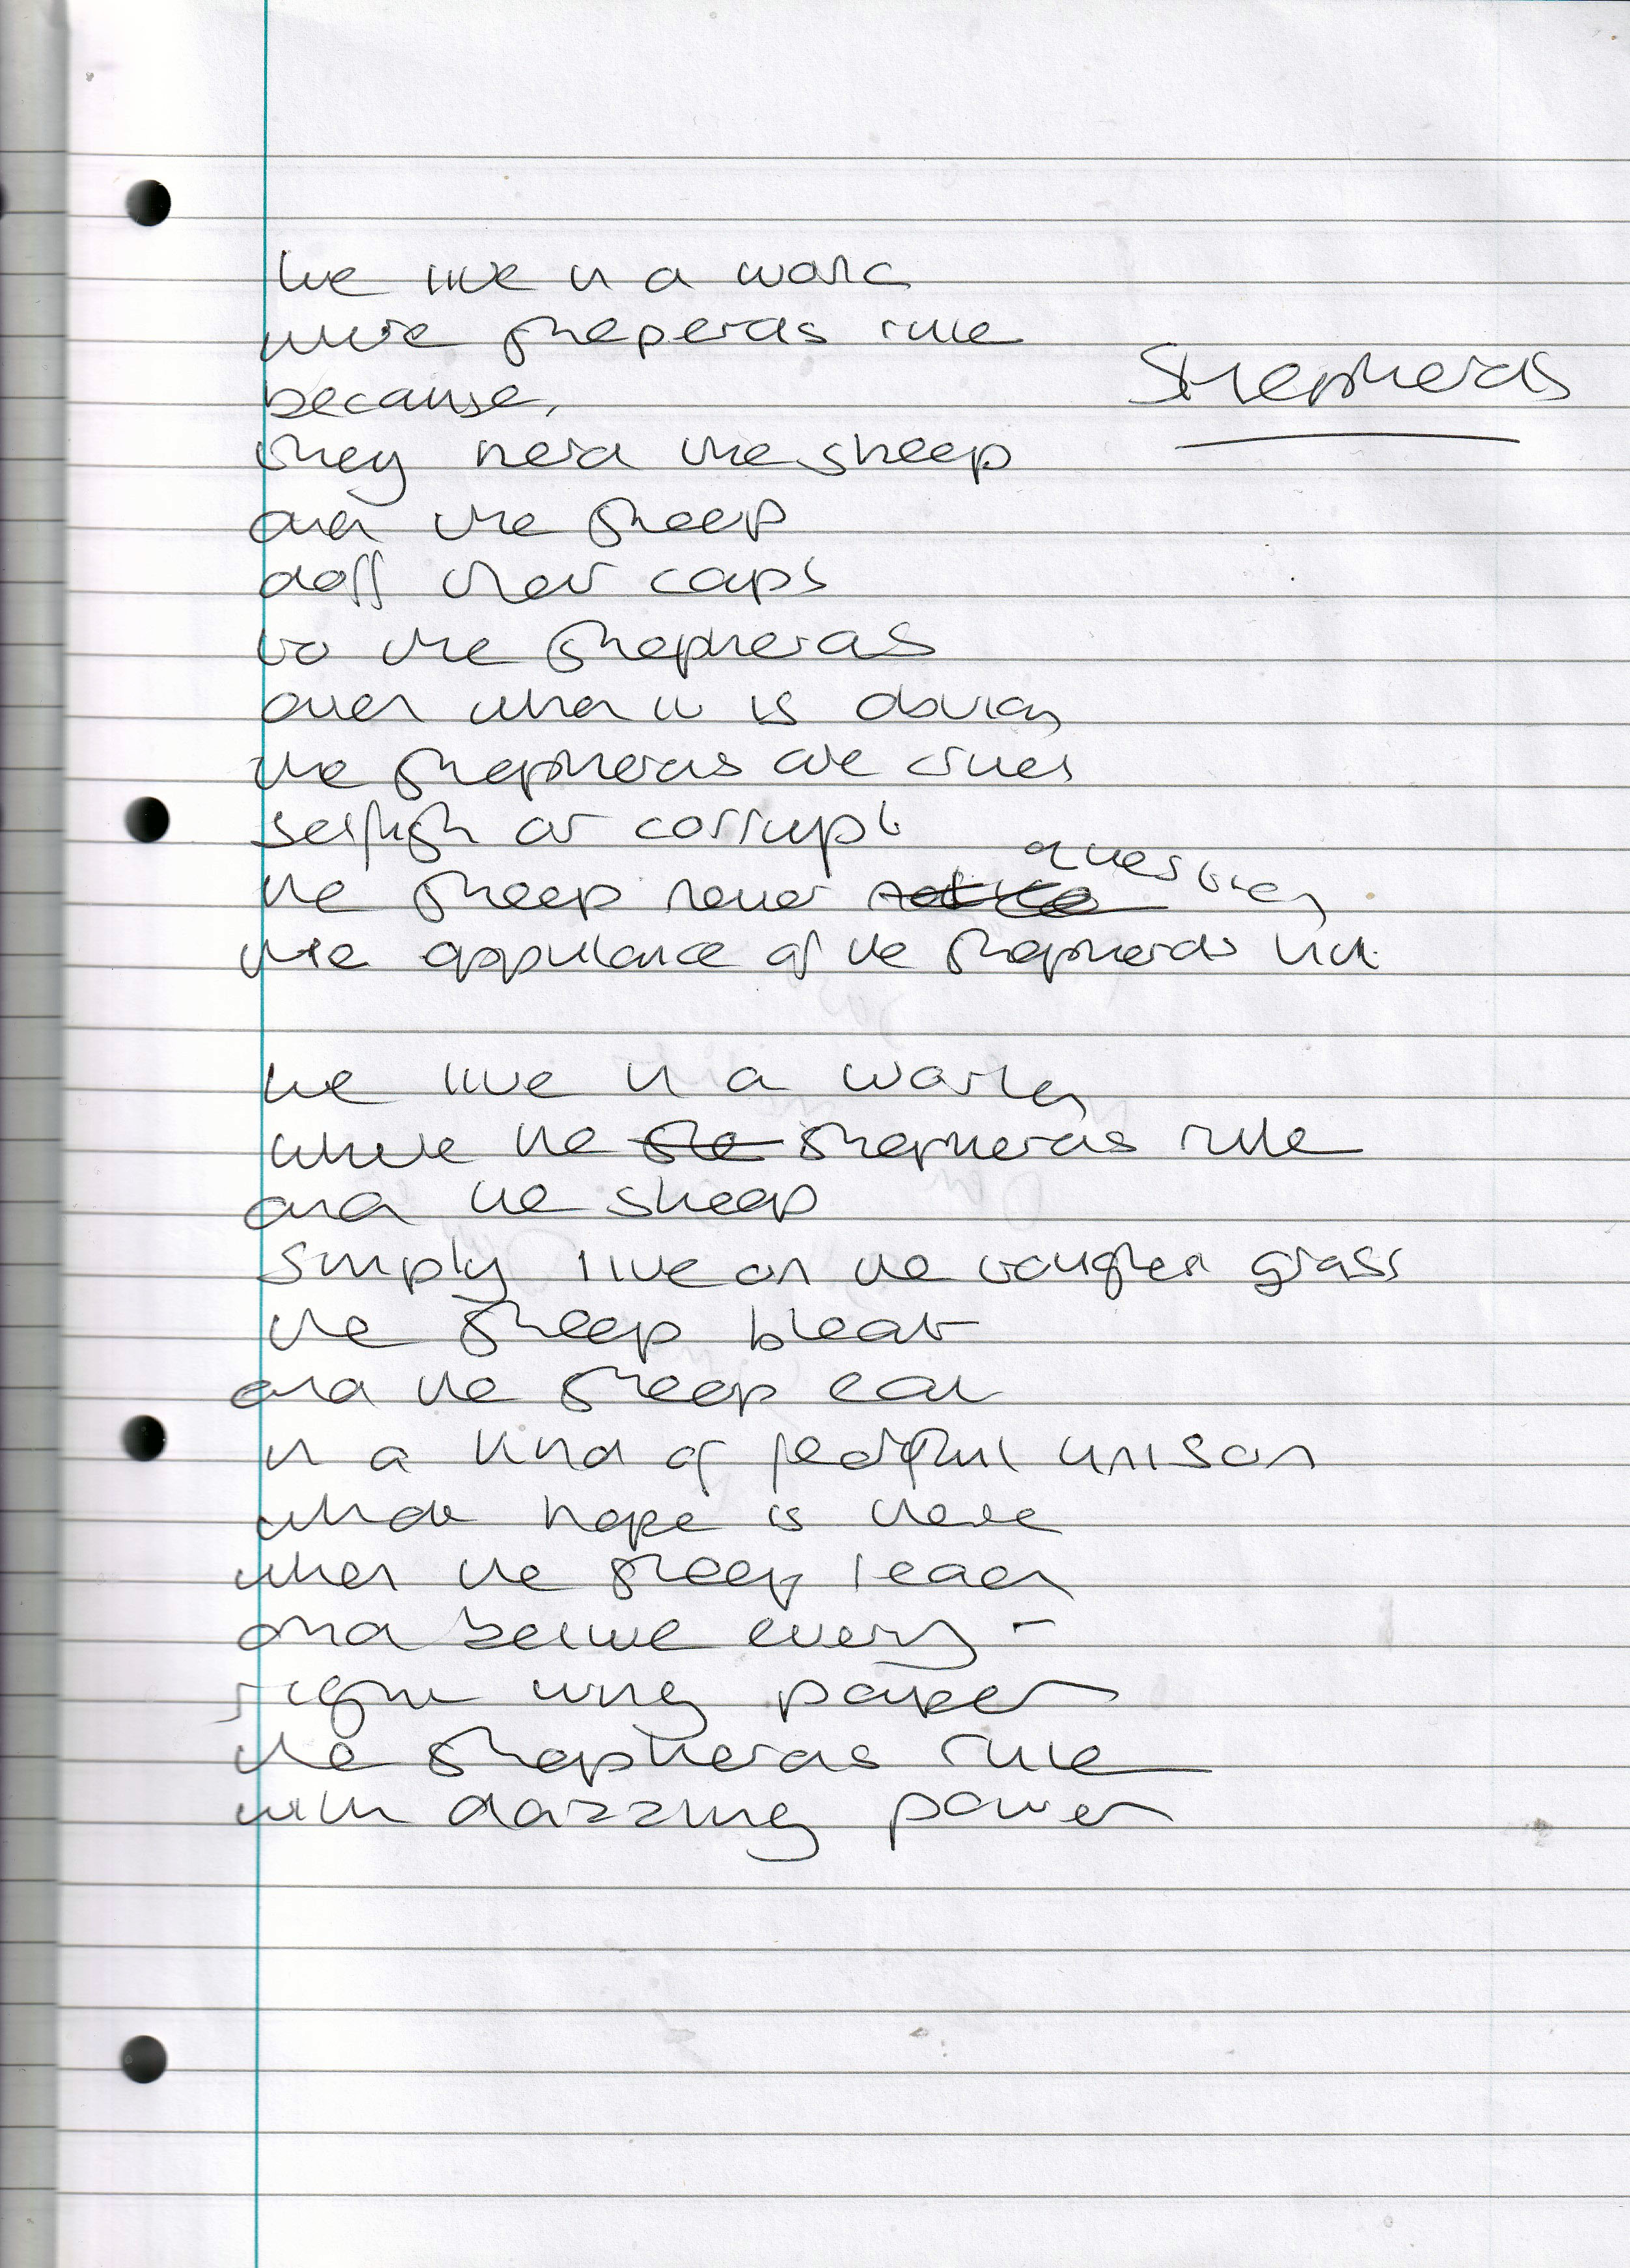 Shepherds
We live in a world
where sheperds rule
because,
they herd the sheep
and the sheep
doff their caps
to the shepherds
even when it is obvious
the shepherds are cruel
selfish or corrupt
question
the sheep never notice
the oppulance of the shepherds hut.
We live in a world
where the she shepherds rule
and the sheep
simply live on the tougher grass
the sheep bleat
and the sheep eat
in a kind of unison
what hope is there
when the sheep
and believe every-
wing paper
the shepherds rule
with dazzling power